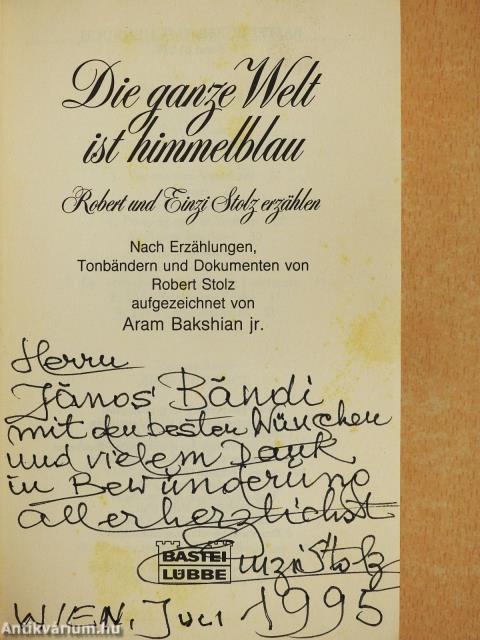 Die ganze Welt
ist himmelblau
Robert und Einzi Stolz erzählen
Nach Erzählungen,
Tonbändern und Dokumenten von
Robert Stolz
aufgezeichnet von
Aram Bakshian jr.
Herrn
János Bándi
mit den besten Wünschen
und vielem Dank
in Bewünderüng
allerherzlichst
Einzi Stolz
BASTEI
LÜBBE
WIEN, Juli 1995
Antikvárium.hu